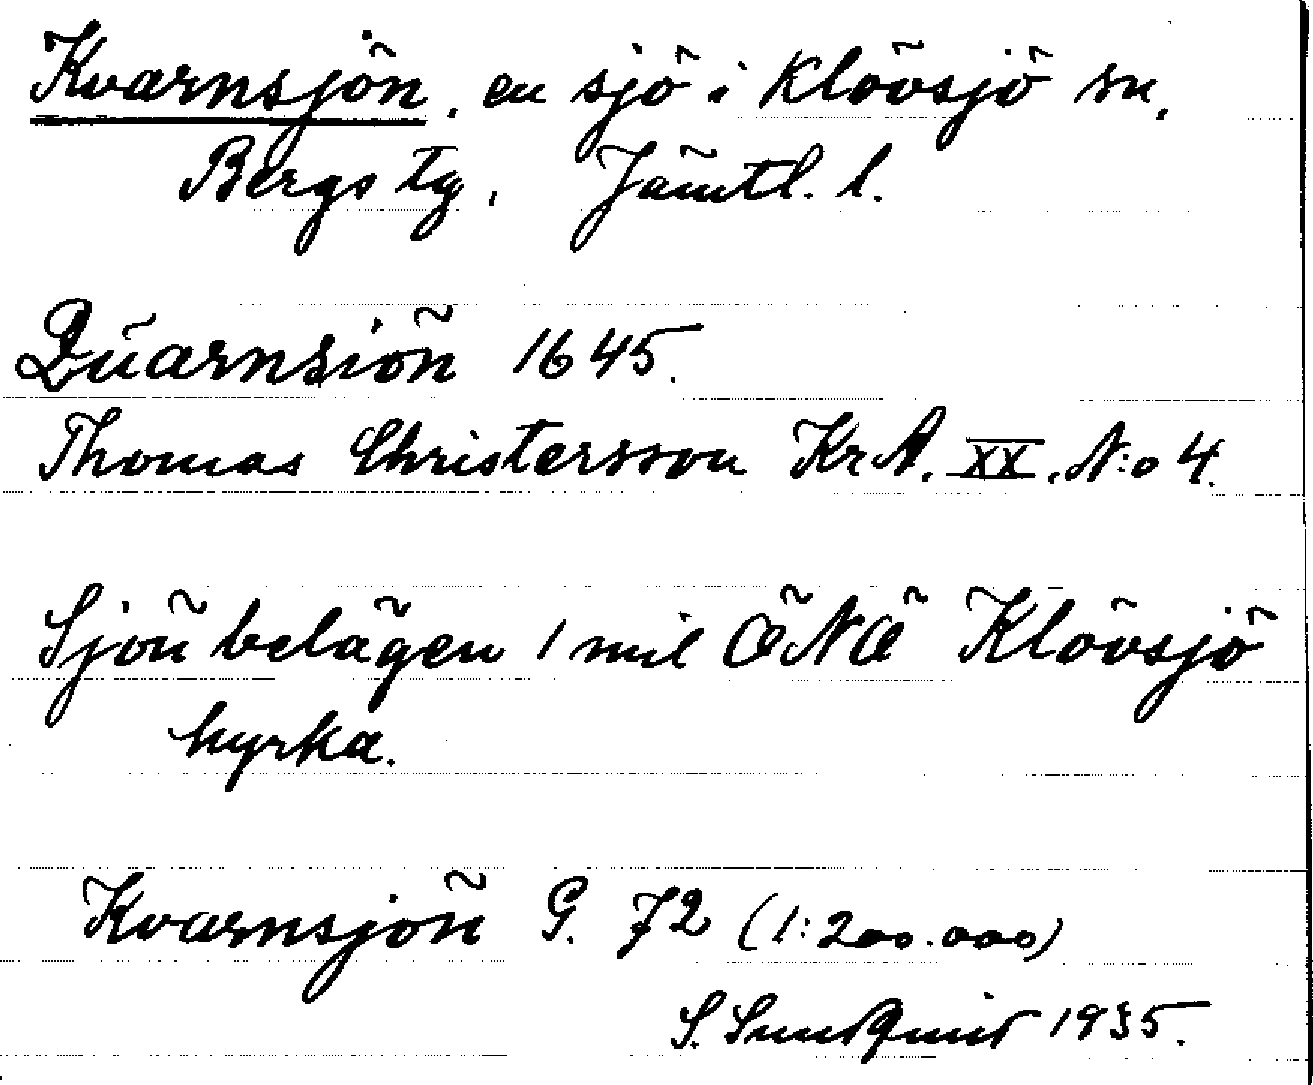 Kvarnsjön, en sjö i Klövsjö sn,
Bergs tg, Jämtl. l.
Qũarnsiön 1645.
Thomas Christersson KrA. XX. N:o 4.
Sjön belägen 1 mil ÖNÖ Klövsjö
kyrka.
Kvarnsjön G. 72 (1:200.000)
S. Sundquist 1935.